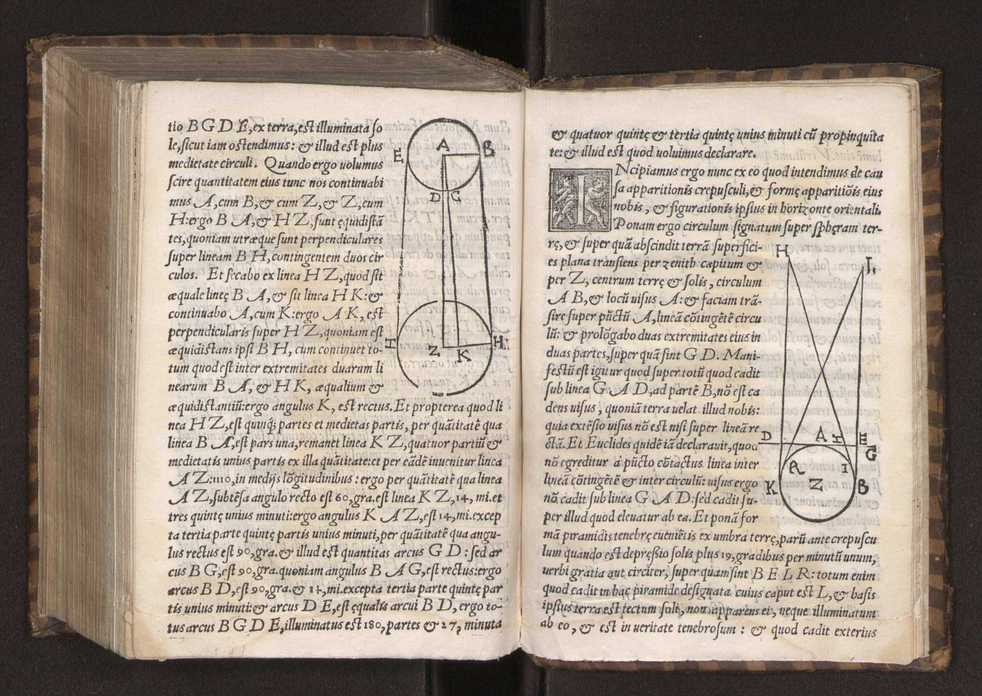 tio B G D E, ex terra, est illuminata so
le, sicut iam ostendimus: & illud est plus
medietate circuli. Quando ergo volumus
scire quantitatem eius tunc nos continuabi
mus A, cum B, & cum Z, & Z, cum
H: ergo B A, & H Z, sunt ęquidistā
tes, quoniam utræque sunt perpendiculares
super lineam B H, contingentem duos cir
culos. Et secabo ex linea H Z, quod sit
æquale lineę B A, & sit linea H K: &
continuabo A, cum K: ergo A K, est
perpendicularis super H Z, quoniam est
æquidistans ipsi B H, cum continuet to-
tum quod est inter extremitates duarum li
nearum B A, & H K, æqualium &
æquidistantiū: ergo angulus K, est rectus. Et propterea quod li
nea H Z, est quinq; partes et medietas partis, per quātitatē qua
linea B A, est pars una, remanet linea K Z, quatuor partiū &
medietatis unius partis ex illa quātitate: et per eādē inuenitur linea
A Z: 1110, in medijs lōgitudinibus: ergo per quātitatē qua linea
A Z, subtēsa angulo recto est 60, gra. est linea K Z, 14, mi. et
tres quintę unius minuti: ergo angulus K A Z, est 14, mi. excep
ta tertia parte quintę partis unius minuti, per quātitatē qua angu-
lus rectus est 90, gra. & illud est quantitas arcus G D: sed ar
cus B G, est 90, gra. quoniam angulus B A G, est rectus: ergo
arcus B D, est 90, gra. & 14, mi. excepta tertia parte quintę par
tis unius minuti: & arcus D E, est equalis arcui B D, ergo to-
tus arcus B G D E, illuminatus est 180, partes & 27, minuta
E A B
D G
H Z K H
& quatuor quintę & tertia quintę unius minuti cū propinquita
te: & illud est quod voluimus declarare.
INcipiamus ergo nunc ex eo quod intendimus de cau
sa apparitionis crepusculi, & formę apparitiōis eius
nobis, & figurationis ipsius in horizonte orientali.
Ponam ergo circulum signatum super sphęram ter-
rę, & super quā abscindit terrā superfici-
es plana transiens per zenith capitum &
per Z, centrum terrę & solis, circulum
A B, & locū visus A: & faciam trā-
sire super pūctū A, lineā cōtingētē circu
lū: & prolōgabo duas extremitates eius in
duas partes, super quā sint G D. Mani-
festū est igitur quod super totū quod cadit
sub linea G A D, ad partē B, nō est ca
dens visus, quoniā terra velat illud nobis:
quia extēsio visus nō est nisi super lineā re
ctā. Et Euclides quidē iā declarauit, quod
nō egreditur à pūcto cōtactus linea inter
lineā cōtingētē & inter circulū: visus ergo
nō cadit sub linea G A D: sed cadit su-
per illud quod eleuatur ab ea. Et ponā for
mā piramidis tenebrę euenietis ex umbra terrę, parū ante crepuscu
lum quando est depressio solis plus 19, gradibus per minutū unum,
verbi gratia aut circiter, super quam sint B E L R: totum enim
quod cadit in hac piramide designata cuius caput est L, & basis
ipsius terra est tectum soli, non apparens ei, neque illuminatum
ab eo, & est in veritate tenebrosum: & quod cadit exterius
H L
D A H E
G
R I
K Z B